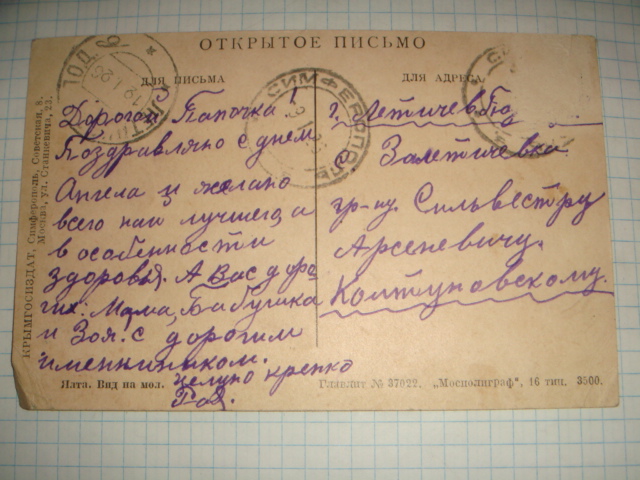 ОТКРЫТОЕ ПИСЬМО
ДЛЯ ПИСЬМА
Дорогой Папочка!
Поздравляю с днем
Ангела и желаю
всего наилучшего, а
в особенности
здоровья. А Вас доро-
гие: Мама, Бабушка
и Зоя с дорогим
именинником.
Целую крепко
ДЛЯ АДРЕСА
г. Летичев
с. Залетичевка
гр-ну. Сильвестру
Арсеневичу.
Колтуновскому.
СИМФЕРОПОЛЬ
КРЫМГОСИЗДАТ, Симферополь, Советская, 8.
Москва, ул. Станкевича, 23.
Ялта. Вид на мол.
Главлит № 37022. „Мосполиграф", 16 тип. 3500.